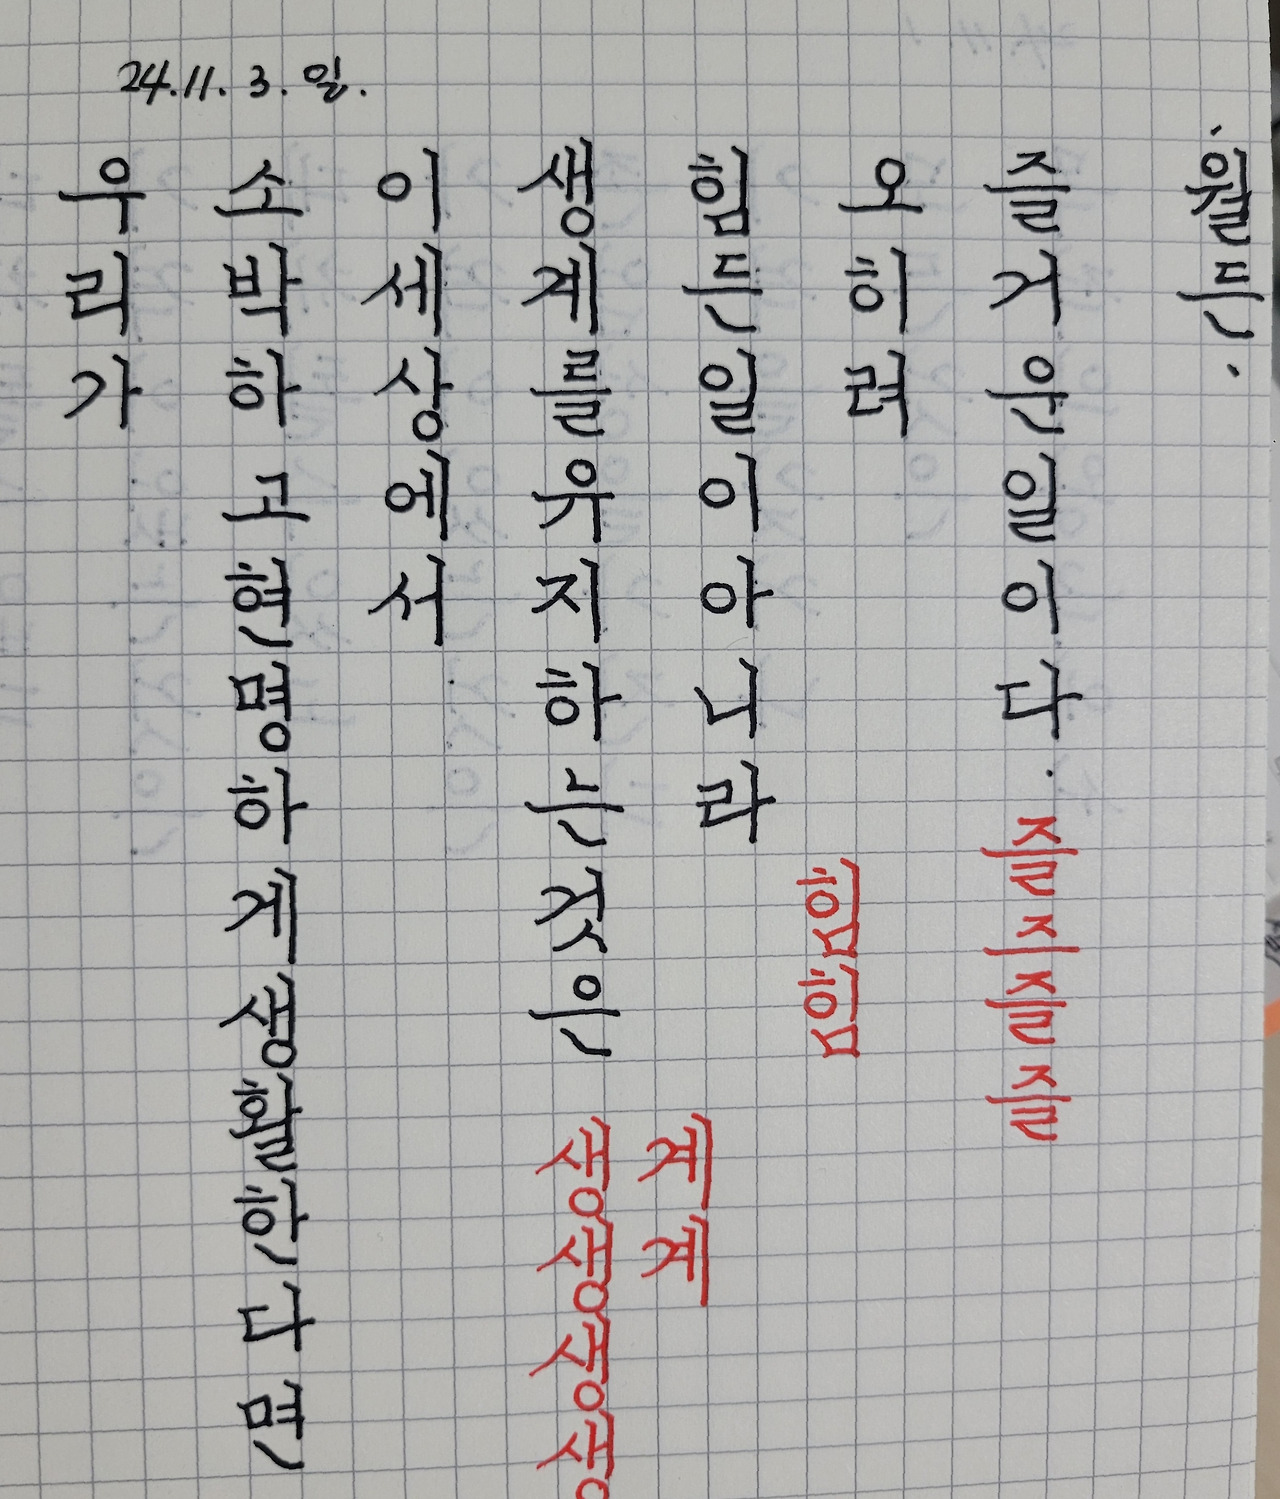 24.11.3.일.
우리가
소박하고현명하게생활한다면
이세상에서
생계를유지하는것은 생생생생
계계
힘든일이아니라
힘힘
오히려
즐거운일이다. 즐즈즐즐
·월든·